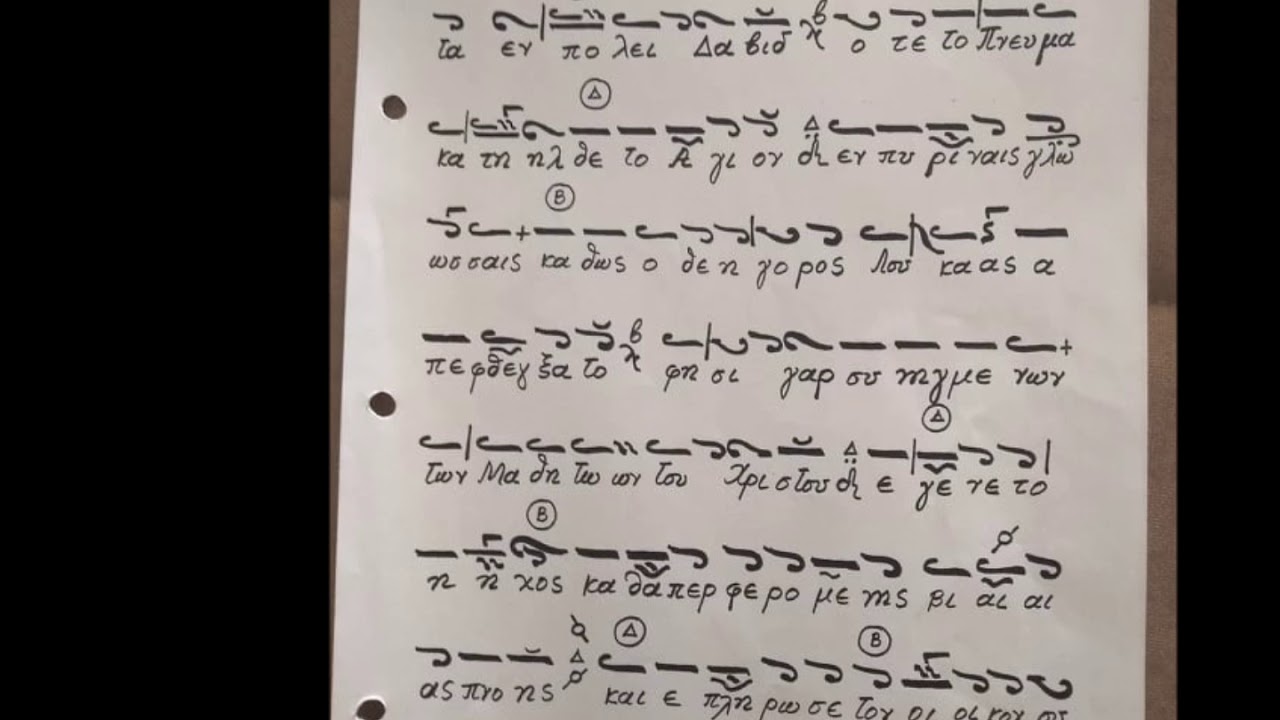 τα εν πο λει Δα βιδ ο τε το Πνευ μα
Δ
κα τη ηλ θε το Α γι ον εν πυ ρι ναις γλω
Β
ωσ σαις κα θως ο θε η γο ρος Λου κα ας α
πε φθεγ ξα το φη σι γαρ συ ηγ με νων
Δ
των Μα θη τω ων του Χρι στου ε γε νε το
Β
η η χος κα θα περ φε ρο με νης βι αι αι
Δ Β
ας πνο ης και ε πλη ρω σε τον οι οι κον ου